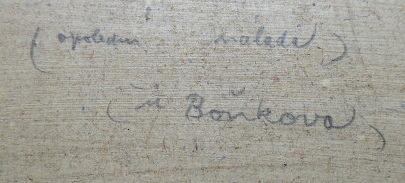 (opolední nálada)
(u Boňkova)